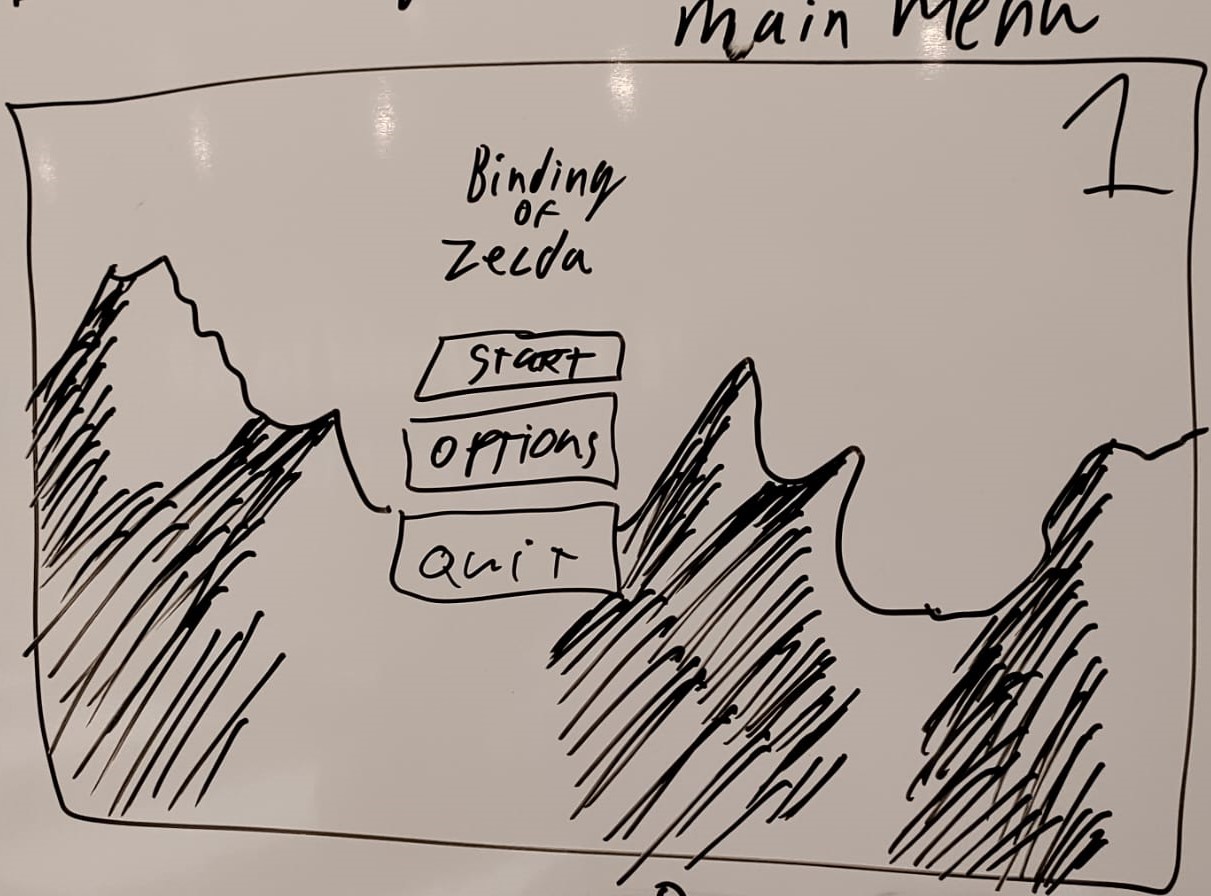 main menu
1
Binding
OF
Zelda
START
OPTions
Quit